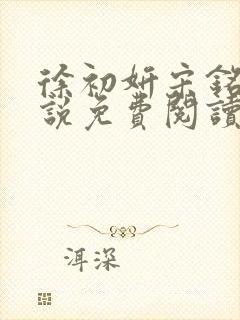 徐初妍宋銘
說免費閱讀
洱深